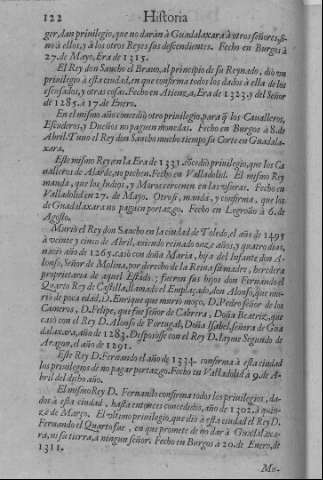 122 Historia
ger, dan priuilegio, que no daràn à Guadalaxara à otros señores, si-
no à ellos, y à los otros Reyes sus descendientes. Fecho en Burgos à
27. de Mayo, Era de 1315.
El Rey don Sancho el Brauo, al principio de su Reynado, dio vn
priuilegio à esta ciudad, en que confirma todos los dados à ella de los
escusados, y otras cosas. Fecho en Atienza, Era de 1323. y del Señor
de 1285. à 17. de Enero.
En el mismo año concediò otro priuilegio, para q̃ los Caualleros,
Escuderos, y Dueños no paguen monedas. Fecho en Burgos à 8. de
Abril. Tuuo el Rey don Sancho mucho tiempo su Corte en Guadala-
xara.
Este mismo Rey en la Era de 1331. cõcediò priuilegio, que los Ca-
ualleros de Alarde, no pechen. Fecho en Valladolid. El mismo Rey
manda, que los Iudios, y Moros cercenen en las vsuras. Fecho en
Valladolid en 27. de Mayo. Otrosi, manda, y confirma, que los
de Guadalaxara no paguen portazgo. Fecho en Logroño à 6. de
Agosto.
Muriò el Rey don Sancho en la ciudad de Toledo, el año de 1495
à veinte y cinco de Abril, auiendo reinado onze años, y quatro dias,
naciò año de 1265. casò con doña Maria, hija del Infante don A-
lonso, Señor de Molina, por derecho de la Reina su madre, heredera
proprietaria de aquel Estado; fueron sus hijos don Fernando el
Quarto Rey de Castilla, llamado el Emplaçado, don Alonso, que mu-
riò de poca edad, D. Enrique que muriò moço, D. Pedro señor de los
Cameros, D. Felipe, que fue señor de Cabrera, Doña Beatriz, que
casò con el Rey D. Alonso de Portugal, Doña Isabel, señora de Gua
dalaxara, año de 1283. Desposòse con el Rey D. Iayme Segundo de
Aragon, el año de 1291.
Este Rey D. Fernando el año de 1334. confirma à esta ciudad
los priuilegios de no pagar portazgo. Fecho en Valladolid à 9. de A-
bril del dicho año.
El mismo Rey D. Fernando confirma todos los priuilegios, da-
dos à esta ciudad, hasta entonces concedidos, año de 1302. à quin-
ze de Março. El vltimo priuilegio, que diò à esta ciudad el Rey D.
Fernando el Quarto fue, en que promete de no dar à Guadalaxa-
ra, ni su tierra, à ningun señor. Fecho en Burgos à 20. de Enero, de
1311.
Mu-